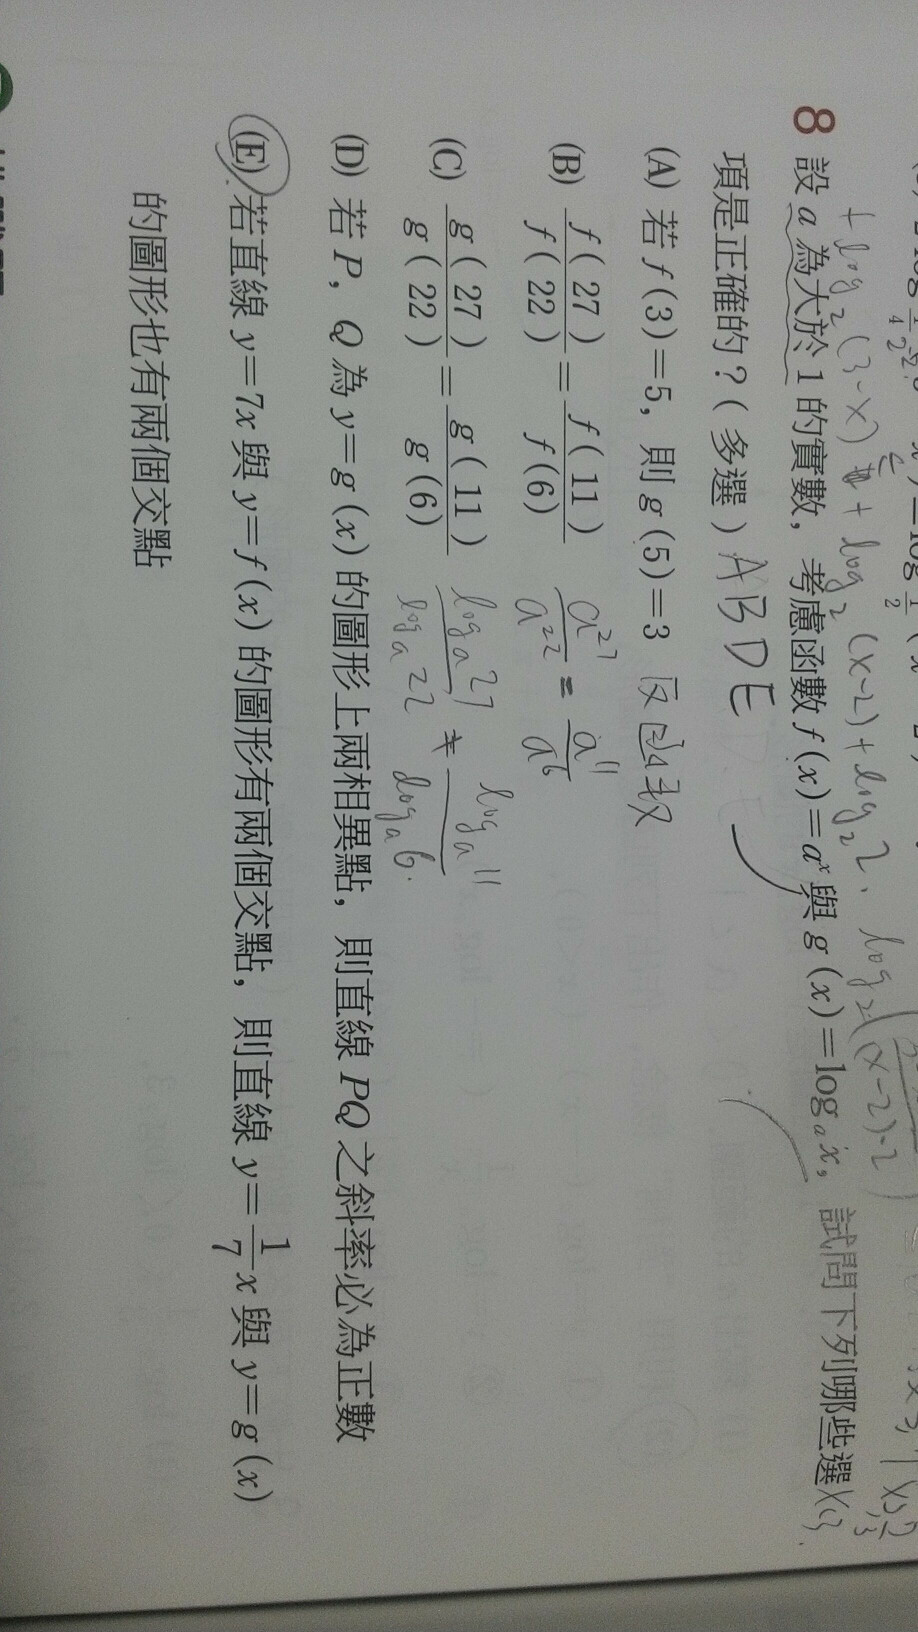 + log₂(3-x) + log₂(x-2) + log₂2、
8 設 a 為大於 1 的實數，考慮函數 f(x)=aˣ 與 g(x)=logₐx，試問下列哪些選
項是正確的？(多選) ABDE
(A) 若 f(3)=5，則 g(5)=3 反函數
(B) f(27)/f(22) = f(11)/f(6) a²⁷/a²² = a¹¹/a⁶
(C) g(27)/g(22) = g(11)/g(6) logₐ27/logₐ22 ≠ logₐ11/logₐ6.
(D) 若 P，Q 為 y=g(x) 的圖形上兩相異點，則直線 PQ 之斜率必為正數
(E) 若直線 y=7x 與 y=f(x) 的圖形有兩個交點，則直線 y=1/7 x 與 y=g(x)
的圖形也有兩個交點